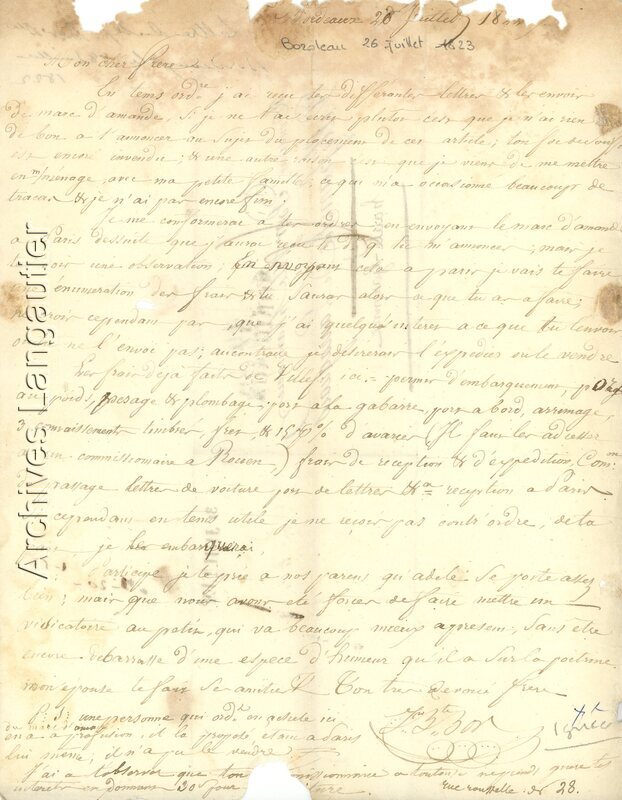 Bordeaux 26 Juillet 18
Bordeau 26 juillet 1823
Mon cher frere
En tems ordre j'ai recu tes differentes lettres & les envois
de marc d'amande, si je ne t'ai ecris plutot cest que je n'ai rien
de bon a t'annoncer au sujet du placement de cet article; ton
est encore invendu; & une autre raison est que je viens de me mettre
en menage, avec ma petite famille, ce qui m'a occasionné beaucoup de
tracas & je n'ai pas encore fini;
Je me conformerai a tes ordres en envoyant le marc d'amande
a Paris dessuite que j'aurai recu le que tu m'annonces; mais je
une observation; En envoyant cela a paris je vais te faire
une enumeration des frais & tu sauras alors ce que tu as a faire;
cependant pas que j'ai quelqu'interet a ce que tu l'envoi
ou ne l'envoi pas; au contraire je desirerais l'expedier ou le vendre
Les frais deja faits de permis d'embarquement,
au poids, pesage & plombage port a la gabarre, port a bord, arremage,
3 connaissements timbres, fret, & 15 % d'avaries (Il faut les adresser
a un commissionaire a Rouen) frais de reception & d'expedition, Comon
passage lettres de voiture port de lettres & reception a Paris
cependant en tems utile je ne reçois pas contr'ordre, de ta
je les embarquerai
Participe je te prie a nos parens qu'adele se porte assez
bien; mais que nous avons été forcés de faire mettre un
vidicatoire au petit, qui va beaucoup mieux apresent, sans etre
encore debarrassé d'une espece d'humeur qu'il a sur la poitrine
mon epouse te fait ses amitiés & Ton tres devoué frere
P.S. une personne qui en achete ici
du marc d'amande
en a a profusion, il l'a proposé, etant a Paris
lui meme; il n'a pu le vendre
J'ai a t'observer que ton commissionnaire a toulouse ne prends que les
interets en donnant 30 jours
rue rousselle n° 28.
Archives Langautier